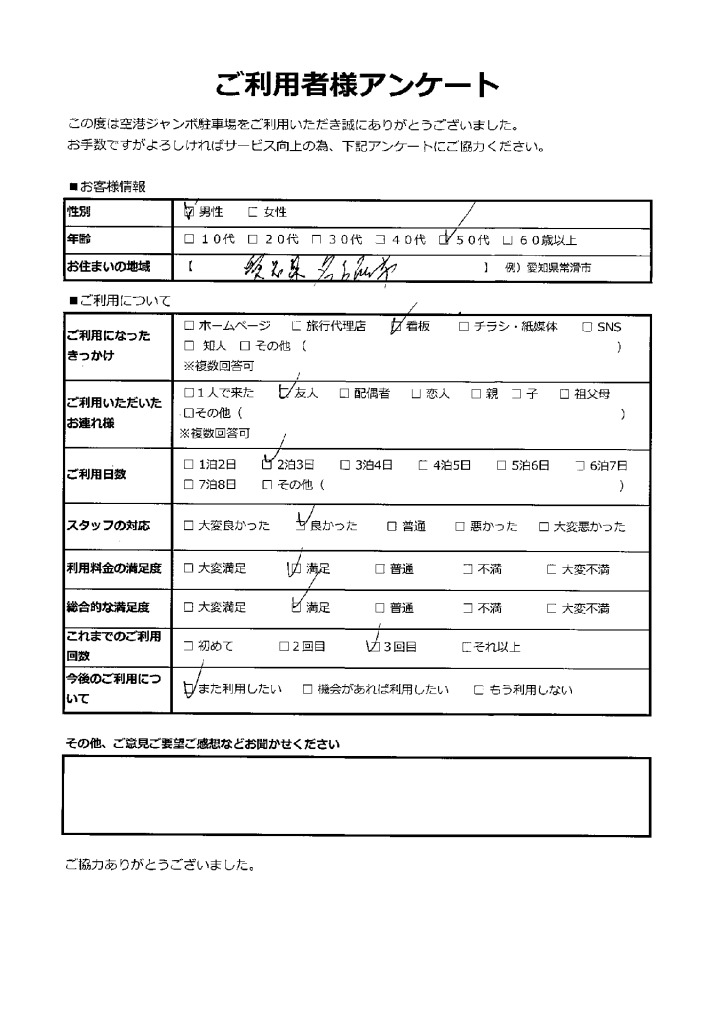 ご利用者様アンケート
この度は空港ジャンボ駐車場をご利用いただき誠にありがとうございました。
お手数ですがよろしければサービス向上の為、下記アンケートにご協力ください。
■お客様情報
性別 ☑男性 □女性
年齢 □10代 □20代 □30代 □40代 ☑50代 □60歳以上
お住まいの地域 【 愛知県 名古屋市 】 例）愛知県常滑市
■ご利用について
ご利用になったきっかけ □ホームページ □旅行代理店 ☑看板 □チラシ・紙媒体 □SNS
□ 知人 □その他（ ）
※複数回答可
ご利用いただいたお連れ様 □1人で来た ☑友人 □配偶者 □恋人 □親 □子 □祖父母
□その他（ ）
※複数回答可
ご利用日数 □1泊2日 ☑2泊3日 □3泊4日 □4泊5日 □5泊6日 □6泊7日
□7泊8日 □その他（ ）
スタッフの対応 □大変良かった ☑良かった □普通 □悪かった □大変悪かった
利用料金の満足度 □大変満足 ☑満足 □普通 □不満 □大変不満
総合的な満足度 □大変満足 ☑満足 □普通 □不満 □大変不満
これまでのご利用回数 □初めて □2回目 ☑3回目 □それ以上
今後のご利用について ☑また利用したい □機会があれば利用したい □もう利用しない
その他、ご意見ご要望ご感想などお聞かせください
ご協力ありがとうございました。